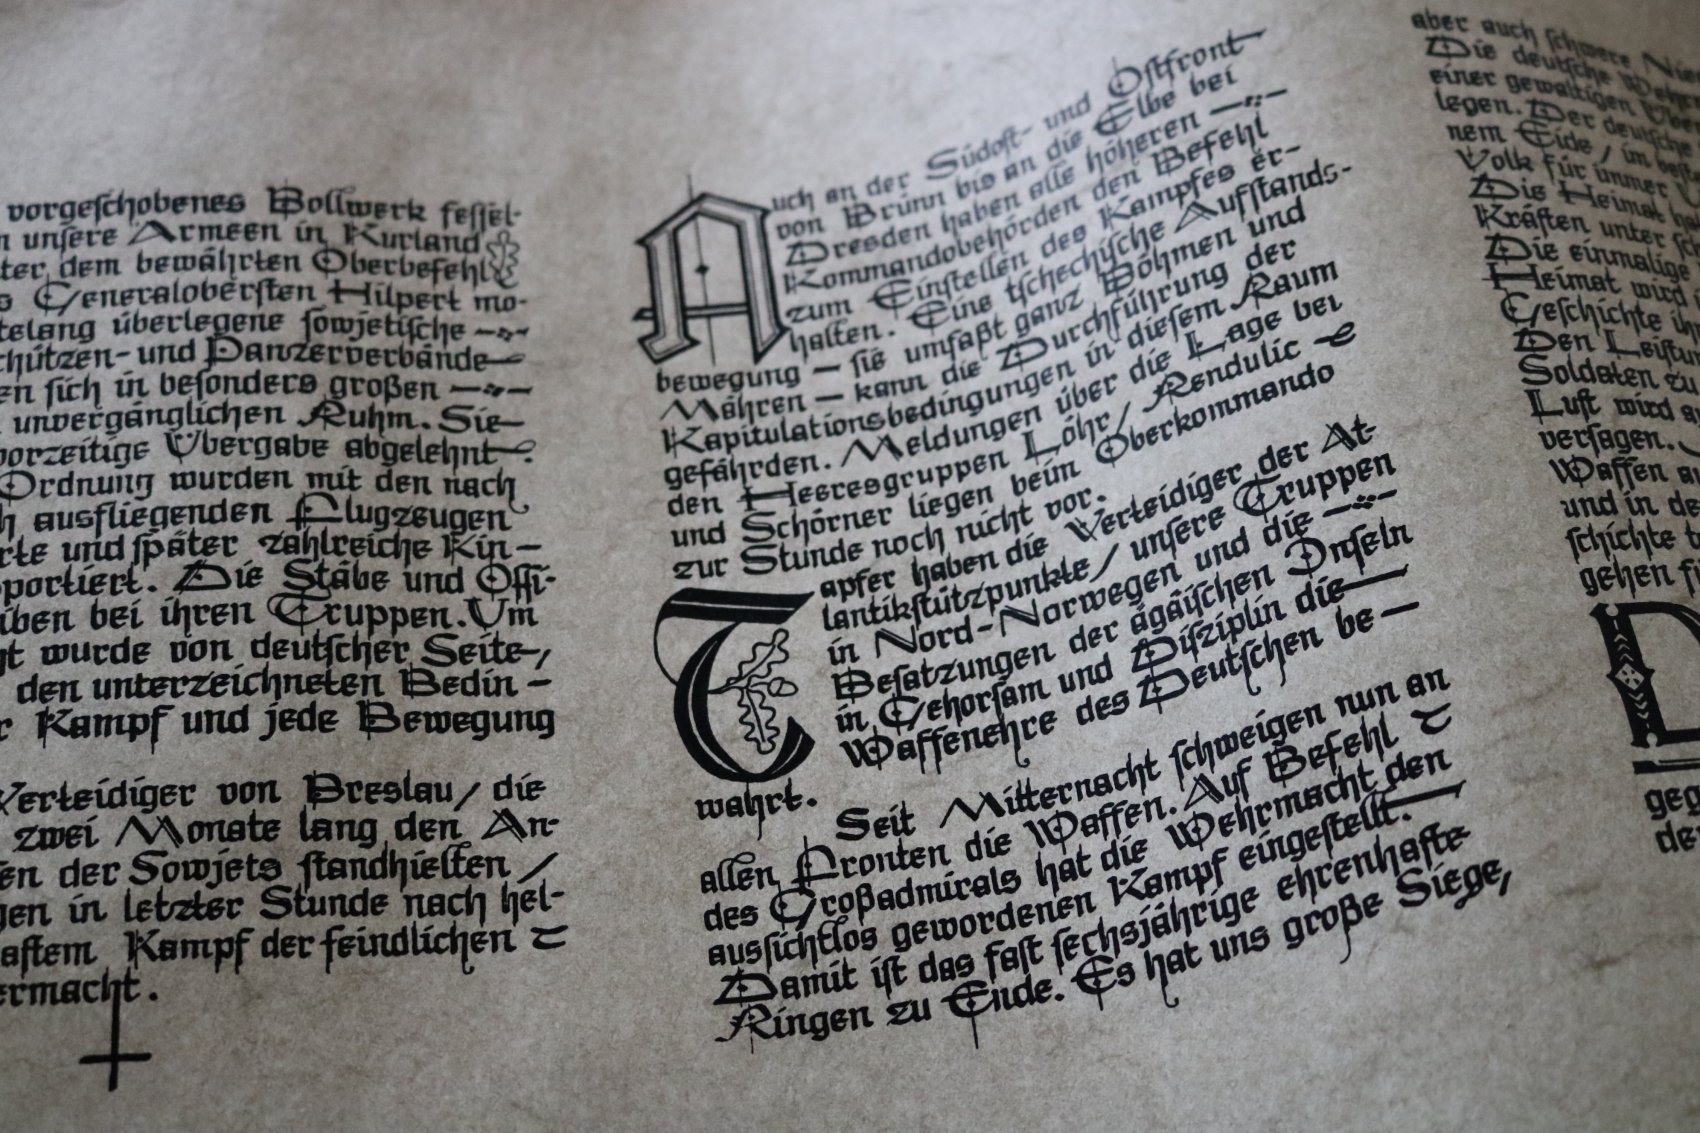 vorgeschobenes Bollwerk fessel-
unsere Armeen in Kurland
dem bewährten Oberbefehl
Generalobersten Hilpert mo-
telang überlegene sowjetische
chützen- und Panzerverbände
en sich in besonders großen
unvergänglichen Ruhm. Sie
vorzeitige Übergabe abgelehnt.
Ordnung wurden mit den nach
h ausfliegenden Flugzeugen
rte und später zahlreiche Kin-
portiert. Die Stäbe und Offi-
iben bei ihren Truppen. Um
t wurde von deutscher Seite,
den unterzeichneten Bedin-
r Kampf und jede Bewegung
Verteidiger von Breslau, die
zwei Monate lang den An-
en der Sowjets standhielten,
gen in letzter Stunde nach hel-
aftem Kampf der feindlichen
ermacht.
Auch an der Südost- und Ostfront
von Brünn bis an die Elbe bei
Dresden haben alle höheren
Kommandobehörden den Befehl
zum Einstellen des Kampfes er-
halten. Eine tschechische Aufstands-
bewegung – sie umfaßt ganz Böhmen und
Mähren – kann die Durchführung der
Kapitulationsbedingungen in diesem Raum
gefährden. Meldungen über die Lage bei
den Heeresgruppen Löhr, Rendulic
und Schörner liegen beim Oberkommando
zur Stunde noch nicht vor.
Tapfer haben die Verteidiger der At-
lantikstützpunkte, unsere Truppen
in Nord-Norwegen und die
Besatzungen der ägäischen Inseln
in Gehorsam und Disziplin die
Waffenehre des Deutschen be-
wahrt.
Seit Mitternacht schweigen nun an
allen Fronten die Waffen. Auf Befehl
des Großadmirals hat die Wehrmacht den
aussichtlos gewordenen Kampf eingestellt.
Damit ist das fast sechsjährige ehrenhafte
Ringen zu Ende. Es hat uns große Siege,
aber auch schwere
Die deutsche Wehr
einer gewaltigen Über
legen. Der deutsche
nem Eide, im beste
Volk für immer
Die Heimat ha
Kräften unter sch
Die einmalige
Heimat wird
Geschichte ih
Den Leistun
Soldaten zu
Luft wird a
versagen.
Waffen au
und in de
schichte t
gehen fü
D
geg
de